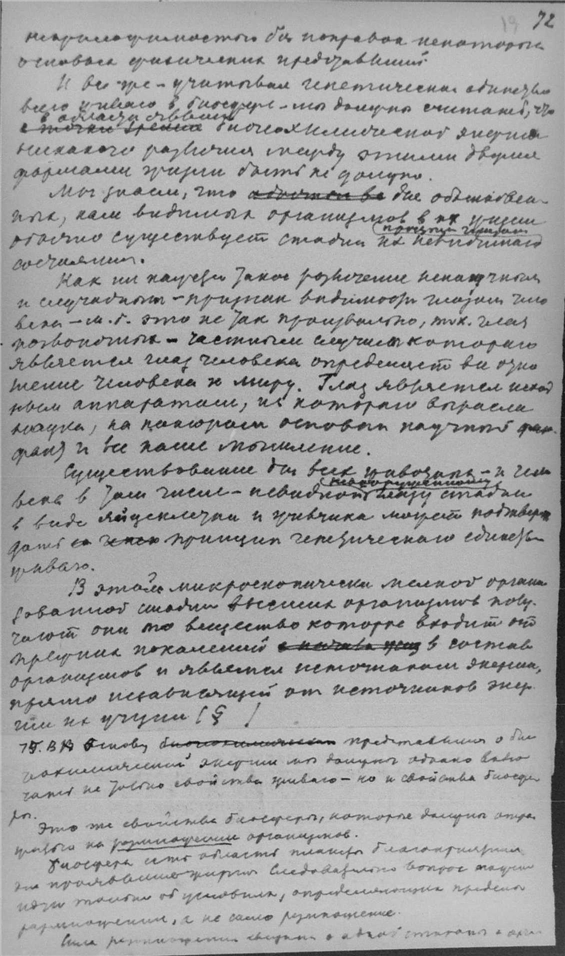 19 72
для поправок некоторых
основных физических представлений.
И все же – учитывая генетическое единство
всего живого в биосфере – мы должны считать, что
в области явлений
с точки зрения биогеохимической энергии
никакого различия между этими двумя
формами жизни быть не должно.
Мы знаем, что для обыкновен-
ных, нам видимых организмов в их жизни
обычно существует стадия их невидимого
состояния.
Как ни казалось такое различение ненаучным
и случайным – признак видимости глазом чело-
века – м.б. это не так произвольно, т.к. глаз
позвоночных – частным случаем которого
является глаз человека определяет его отно-
шение человека к миру. Глаз является исход-
ным аппаратом, из которого выросла
наука, на котором основан научный
и все наше мышление.
Существование для всех животных – и чело-
века в том числе – невидимой стадии
в виде яйцеклетки и живчика может подтвер-
дать принцип генетического единства
живого.
В этой микроскопически мелкой органи-
зованной стадии высших организмов полу-
чают они то вещество которое входит от
прежних поколений в состав
организмов и является источником энергии,
прямо независящей от источников энер-
гии их жизни [§ ]
75. В основу представления о био-
геохимической энергии мы должны однако вклю-
чать не только свойства живого – но и свойства биосфе-
ры.
Это те свойства биосферы, которые должны отра-
жаться на размножении организмов.
Биосфера есть область планеты благоприятная
для проявления жизни. Следовательно вопрос может
идти только об условиях, определяющих пределы
размножения, а не само размножение.
Сила размножения с одной стороны